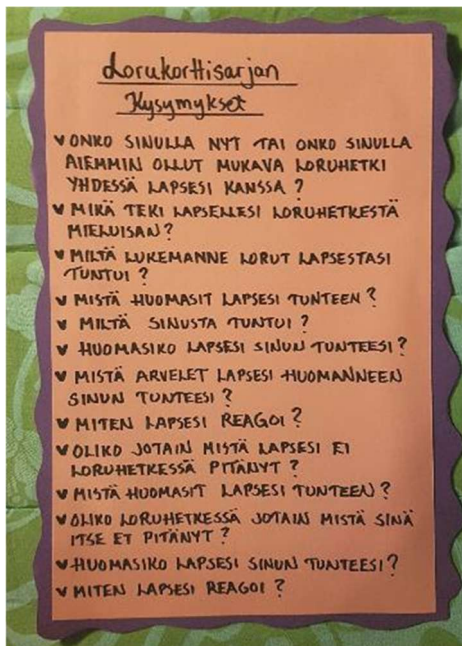 Lorukorttisarjan
Kysymykset
♥ ONKO SINULLA NYT TAI ONKO SINULLA
AIEMMIN OLLUT MUKAVA LORUHETKI
YHDESSÄ LAPSESI KANSSA ?
♥ MIKÄ TEKI LAPSELLESI LORUHETKESTÄ
MIELUISAN ?
♥ MILTÄ LUKEMANNE LORUT LAPSESTASI
TUNTUI ?
♥ MISTÄ HUOMASIT LAPSESI TUNTEEN ?
♥ MILTÄ SINUSTA TUNTUI ?
♥ HUOMASIKO LAPSESI SINUN TUNTEESI ?
♥ MISTÄ ARVELET LAPSESI HUOMANNEEN
SINUN TUNTEESI ?
♥ MITEN LAPSESI REAGOI ?
♥ OLIKO JOTAIN MISTÄ LAPSESI EI
LORUHETKESSÄ PITÄNYT ?
♥ MISTÄ HUOMASIT LAPSESI TUNTEEN ?
♥ OLIKO LORUHETKESSÄ JOTAIN MISTÄ SINÄ
ITSE ET PITÄNYT ?
♥ HUOMASIKO LAPSESI SINUN TUNTEESI ?
♥ MITEN LAPSESI REAGOI ?